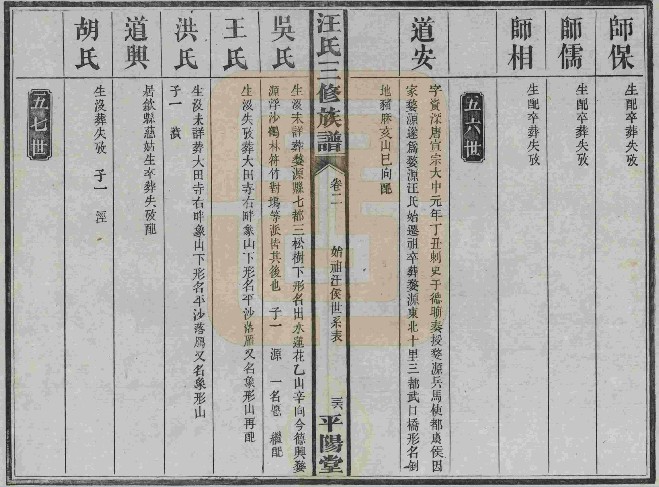 師保
生配卒葬失攷
師儒
生配卒葬失攷
師相
生配卒葬失攷
五六世
道安
字資深唐宣宗大中元年丁丑刺史于德晦奏授婺源兵馬使都虞侯因
家婺源遂為婺源汪氏始遷祖卒葬婺源東北十里三都武口橋形名倒
地 亥山巳向配
汪氏三修族譜
卷二
始祖汪侯世系表
平陽堂
吳氏
生沒未詳葬婺源縣七都三松樹下形名出水蓮花乙山辛向今德興婺
源 沙 林符竹對塢等派皆其後也 子一 源 一名 繼配
王氏
生沒失攷葬大田寺右畔象山下形名平沙落鴈又名象形山再配
洪氏
生沒未詳葬大田寺右畔象山下形名平沙落鴈又名象形山
子一 濱
道興
居歙縣慈姑生卒葬失攷配
胡氏
生沒葬失攷 子一 涇
五七世